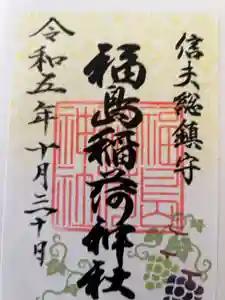 信夫総鎮守
福島稲荷神社
令和五年十月三十日